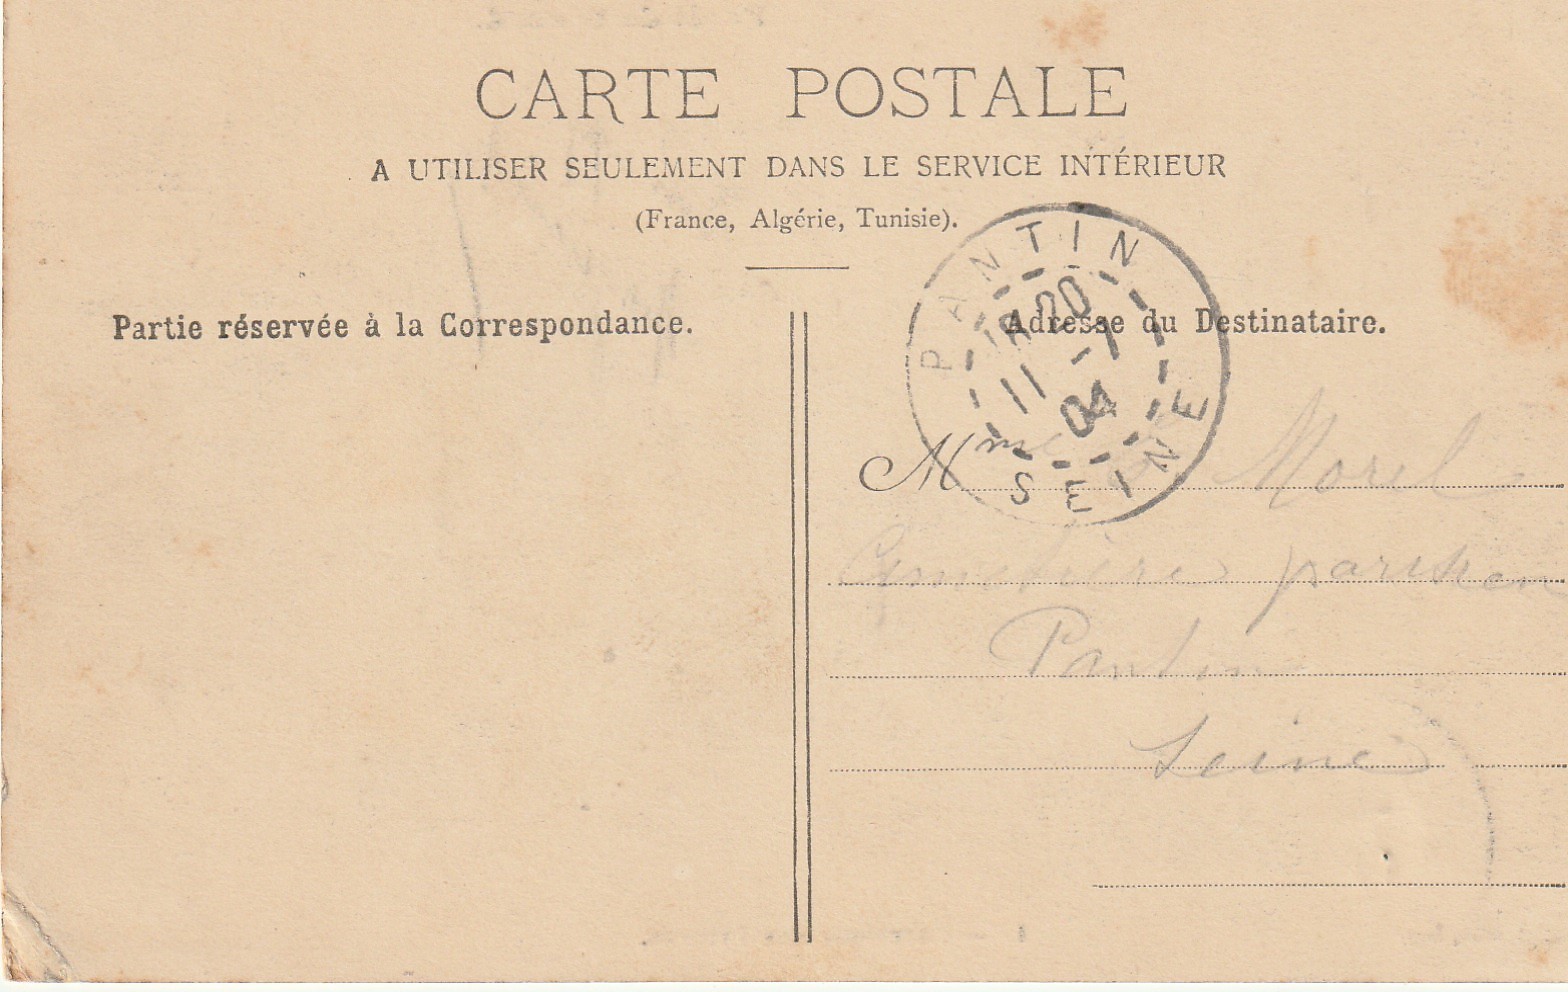 CARTE POSTALE
A UTILISER SEULEMENT DANS LE SERVICE INTÉRIEUR
(France, Algérie, Tunisie).
Partie réservée à la Correspondance.
Adresse du Destinataire.
PANTIN
11 -7
04
SEINE
Mme Morel
Cimetière parisien
Pantin
Seine